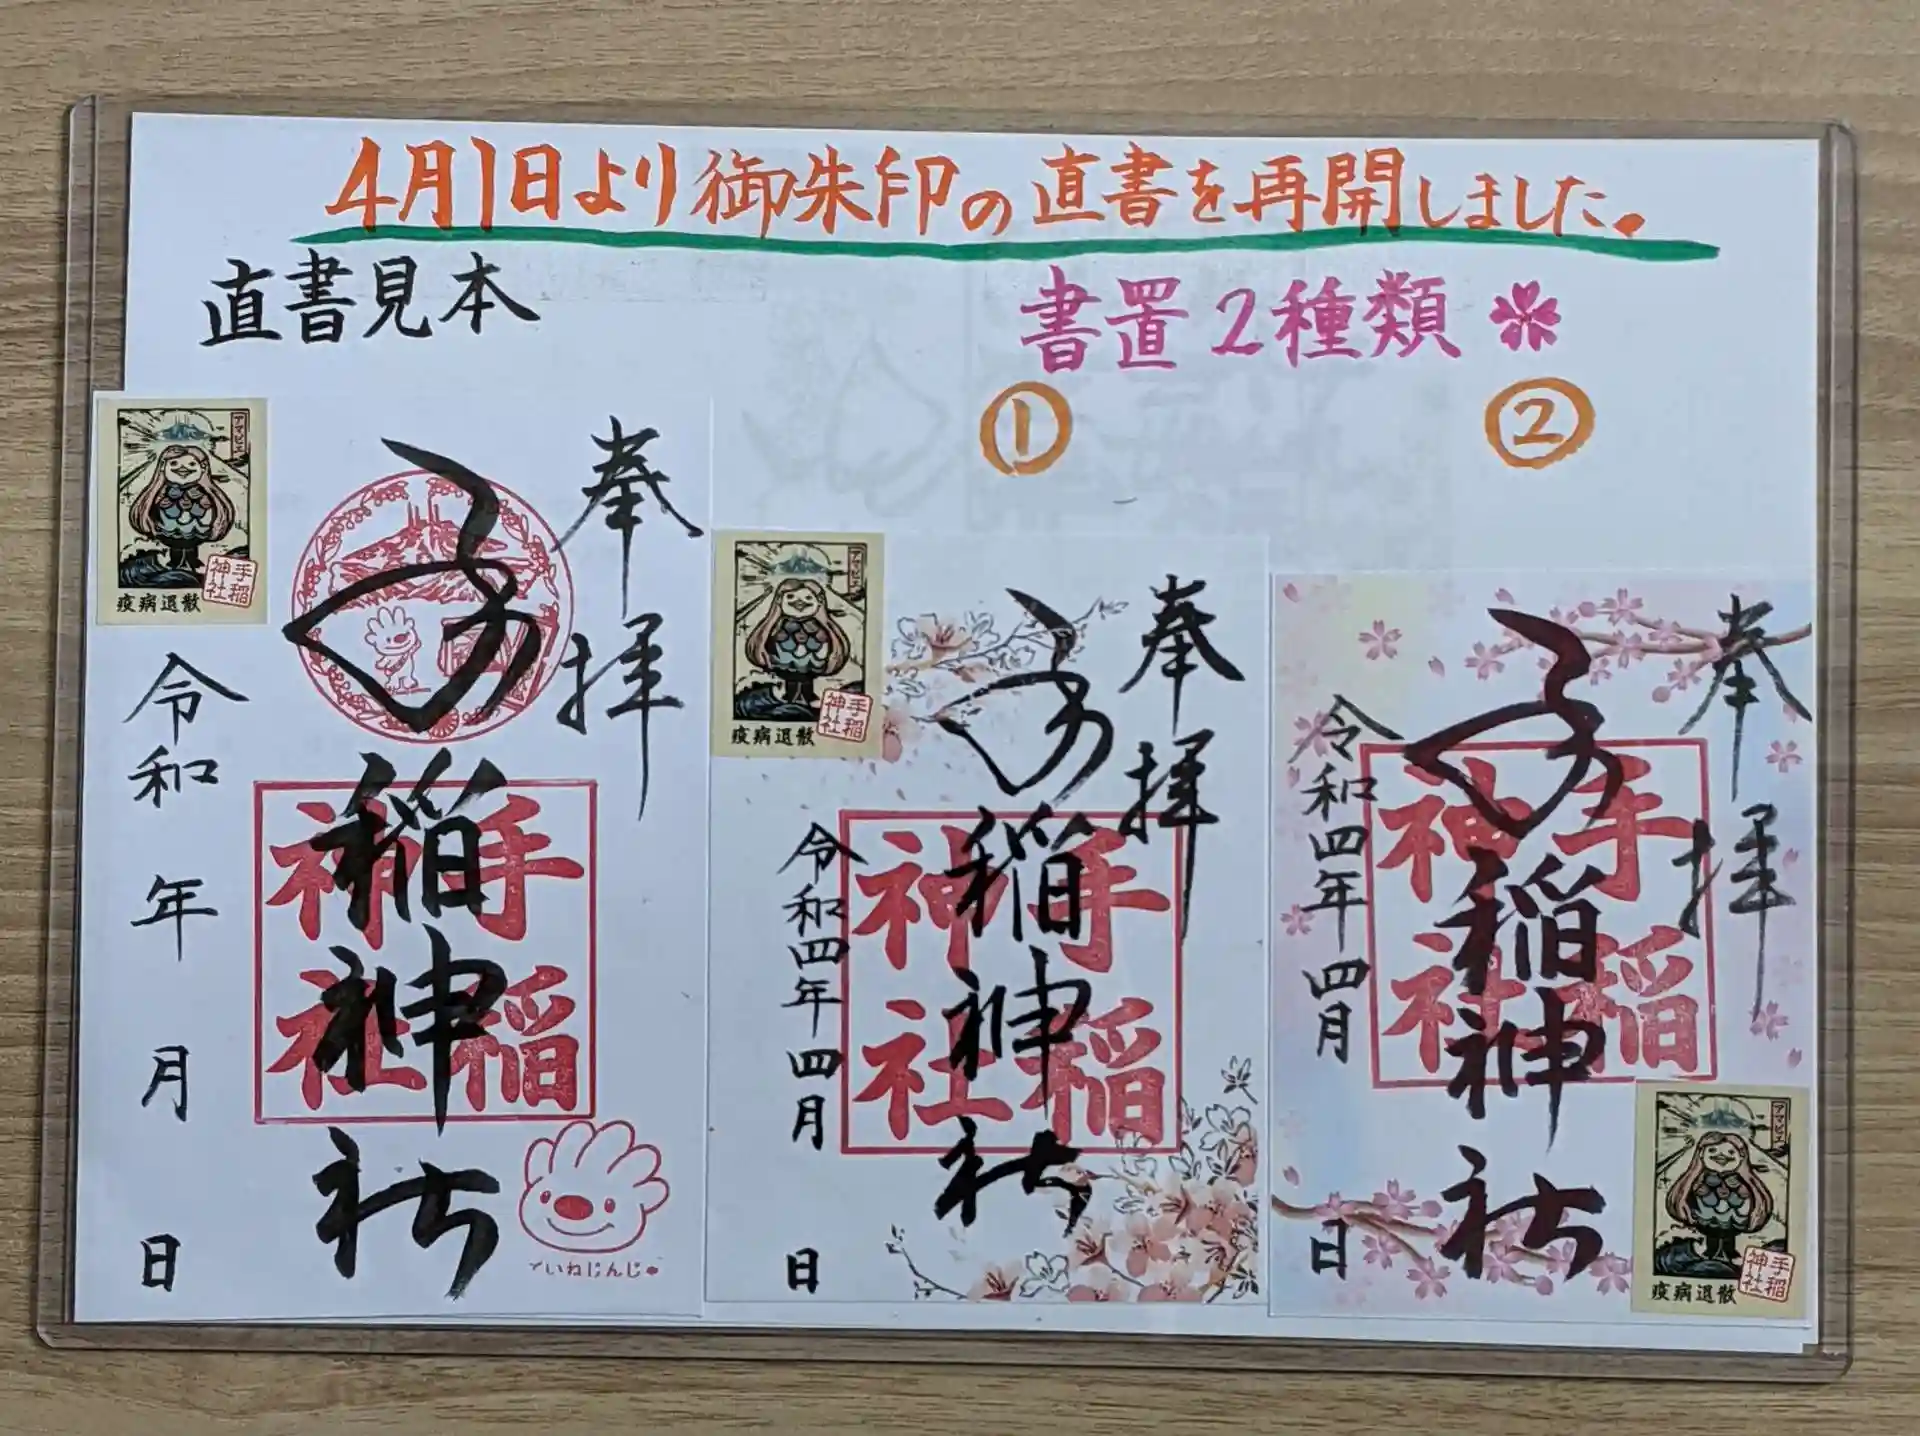 4月1日より御朱印の直書を再開しました。
直書見本
書置2種類
①
②
奉拝
手稲神社
手稲神社
令和 年 月 日
アマビエ
手稲神社
疫病退散
ていねじんじゃ
奉拝
手稲神社
手稲神社
令和四年四月 日
アマビエ
手稲神社
疫病退散
奉拝
手稲神社
手稲神社
令和四年四月 日
アマビエ
手稲神社
疫病退散